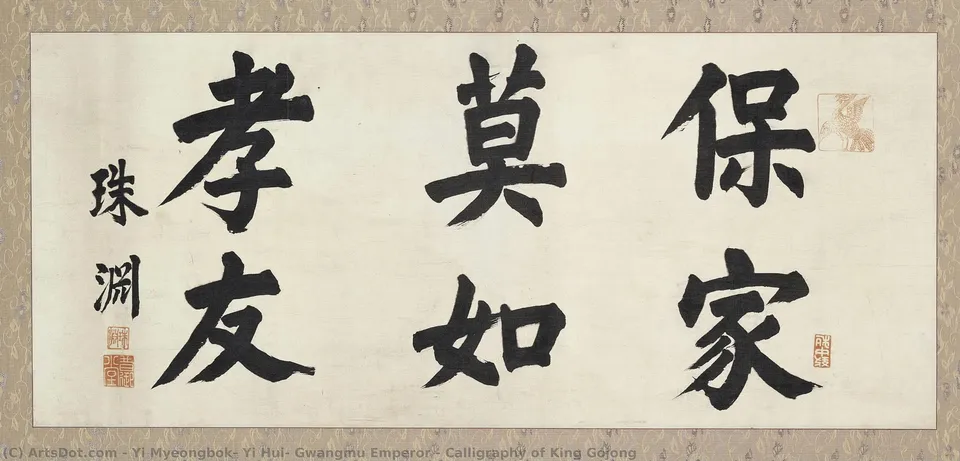 保家
莫如
孝友
珠淵
(C) ArtsDot.com - Yi Myeongbok- Yi Hui- Gwangmu Emperor - Calligraphy of King Gojong